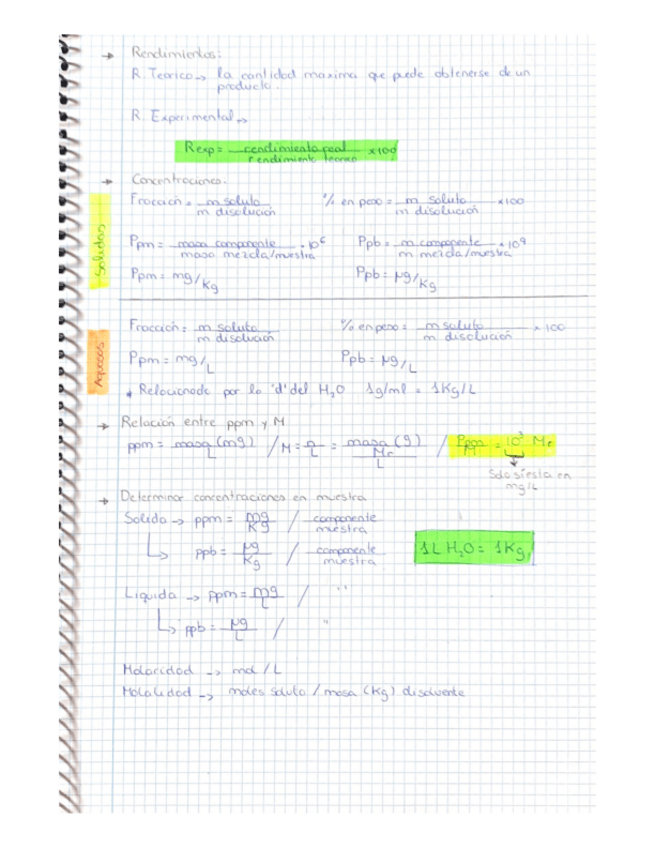 → Rendimientos:
R. Teorico → la cantidad maxima que puede obtenerse de un
producto.
R. Experimental →
Rexp = rendimiento real / rendimiento teorico x100
→ Concentraciones.
Solidas
Fracción = m soluto / m disolución
% en peso = m soluto / m disolución x100
Ppm = masa componente / masa mezcla/muestra · 10⁶
Ppb = m componente / m mezcla/muestra x10⁹
Ppm = mg/Kg
Ppb = µg/Kg
Aquosos
Fracción = m soluto / m disolución
% en peso = m soluto / m disolución x 100
Ppm = mg/L
Ppb = µg/L
* Relacionado por la 'd' del H₂O 1g/ml = 1Kg/L
→ Relación entre ppm y M
ppm = masa (mg) / L / M = n / L = masa (g) / Mr / L / Ppm / M = 10³ Mr
Solo si esta en
mg/L
→ Determinar concentraciones en muestra
Solido → ppm = mg / Kg / componente / muestra
↳ ppb = µg / Kg / componente / muestra
1L H₂O = 1Kg
Liquida → ppm = mg / L / ''
↳ ppb = µg / L / ''
Molaridad → mol / L
Molalidad → moles soluto / masa (Kg) disolvente